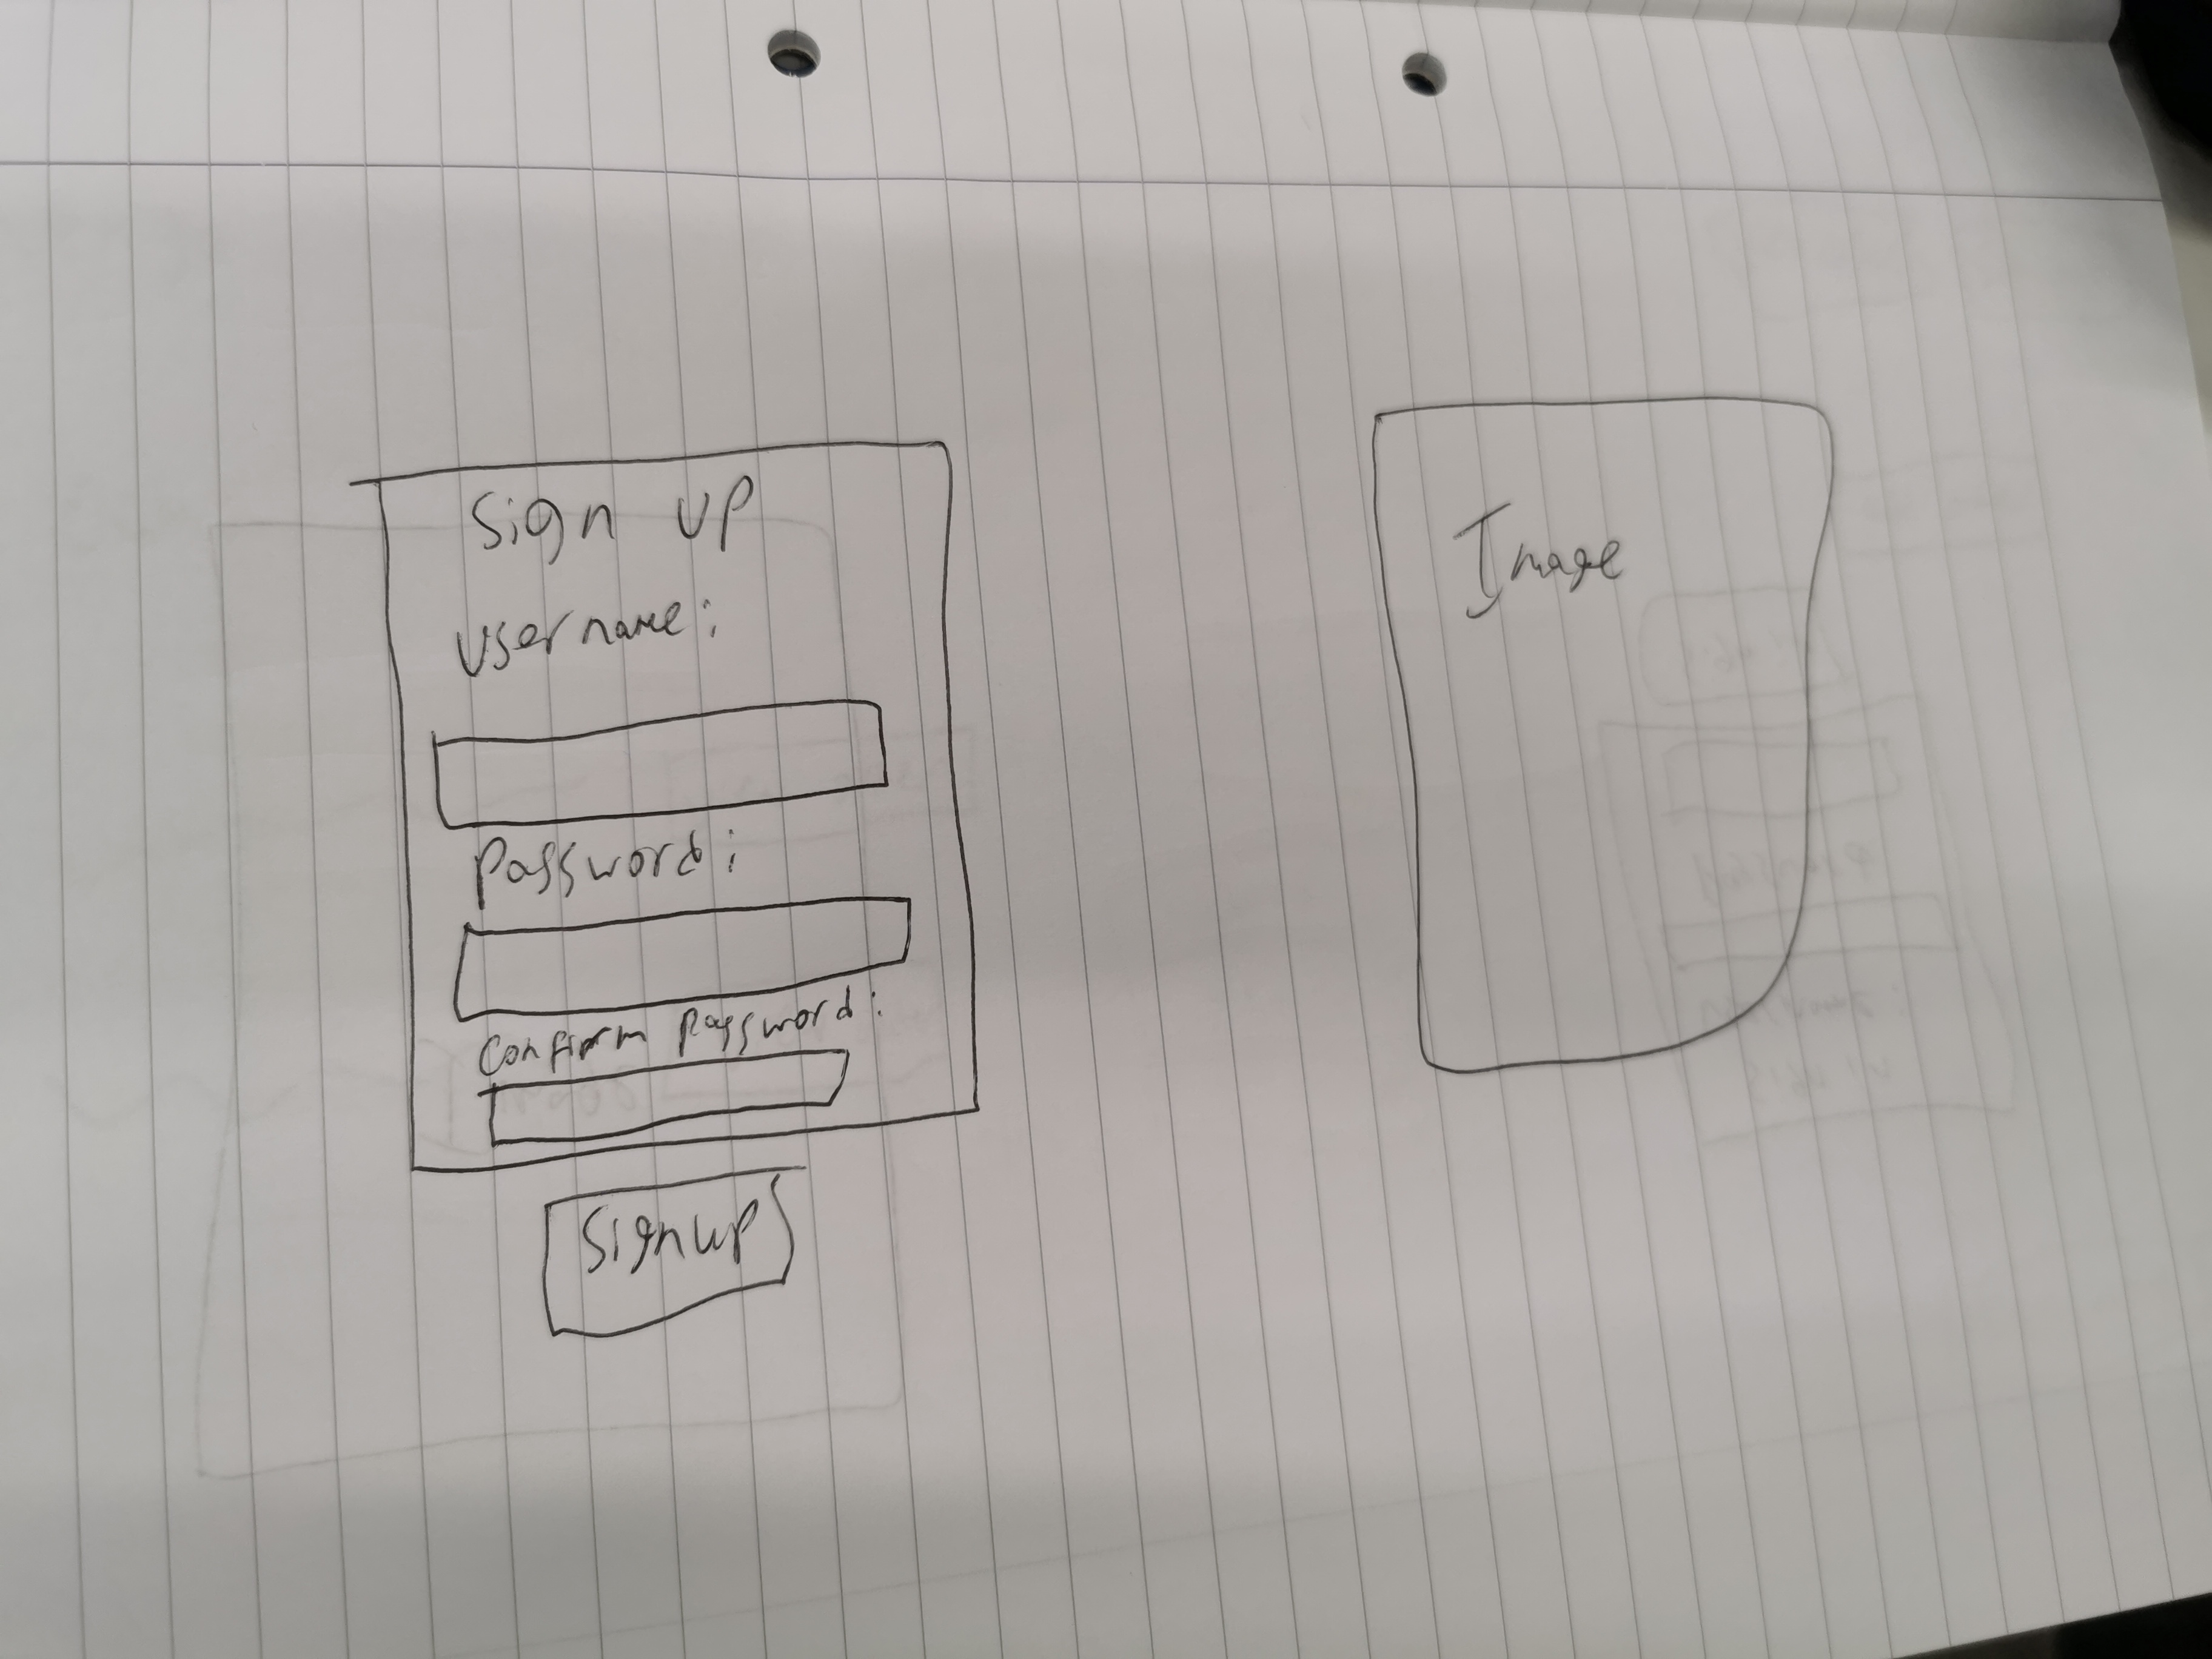 Sign up
username:
Password:
Confirm password:
Signup
Image